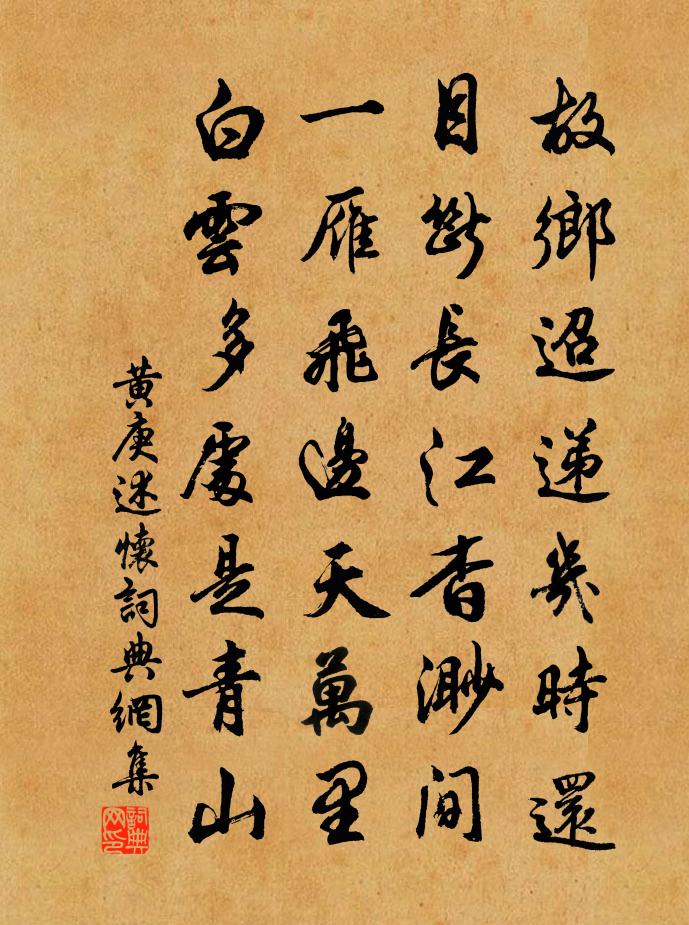 故鄉迢遞幾時還
目斷長江杳渺間
一雁飛邊天萬里
白雲多處是青山
黃庚述懷詞典網集
詞典网印